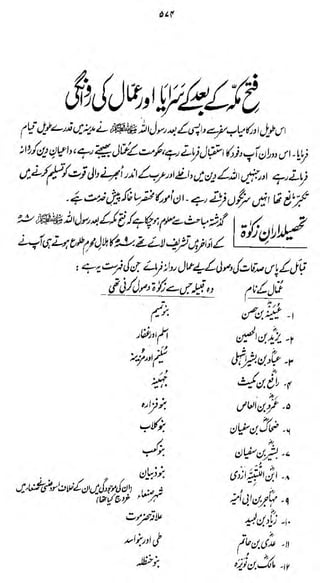 ۵۷۴
فتح مکہ کے بعد کے سرایا اور عمال کی روانگی
اس طویل اور کامیاب سفر سے واپسی کے بعد رسول اللہ ﷺ نے مدینہ میں قدرے طویل قیام
فرمایا۔ اس دوران آپ وفود کا استقبال فرماتے رہے، حکومت کے عمال بھیجتے رہے، داعیانِ دین کو روانہ
فرماتے رہے اور جنہیں اللہ کے دین میں داخلے اور عرب کے اندر ابھرنے والی قوت کو تسلیم کرنے میں
تکبر مانع تھا انہیں سرنگوں فرماتے رہے۔ ان امور کا مختصر سا خاکہ پیشِ خدمت ہے۔
تحصیلدارانِ زکوٰۃ
گذشتہ مباحث سے معلوم ہو چکا ہے کہ فتح مکہ کے بعد رسول اللہ ﷺ ۸ھ
کے اواخر میں تشریف لائے تھے۔ ۹ھ کا ہلالِ محرم طلوع ہوتے ہی آپ نے
قبائل کے پاس صدقات کی وصولی کے لیے عمال روانہ فرمائے جن کی فہرست یہ ہے:
عُمّال کے نام وہ قبیلہ جس سے زکوٰۃ وصول کرنی تھی
۱۔ عُیَینہ بن حصن بنو تمیم
۲۔ یزید بن الحصین اسلم اور غفار
۳۔ عباد بن بشیر اشہلی سُلیم اور مزینہ
۴۔ رافع بن مکیث جُہینہ
۵۔ عمرو بن العاص بنو فزارہ
۶۔ ضحاک بن سفیان بنو کلاب
۷۔ بشیر بن سفیان بنو کعب
۸۔ ابن اللتبیہ ازدی بنو ذبیان
۹۔ مہاجر بن ابی امیہ شہر صنعاء (ان کی موجودگی میں ان کے خلاف اسود عنسی نے صنعاء میں خروج کیا تھا)
۱۰۔ زیاد بن لبید علاقہ حضرموت
۱۱۔ عدی بن حاتم طی اور بنو اسد
۱۲۔ مالک بن نویرہ بنو حنظلہ